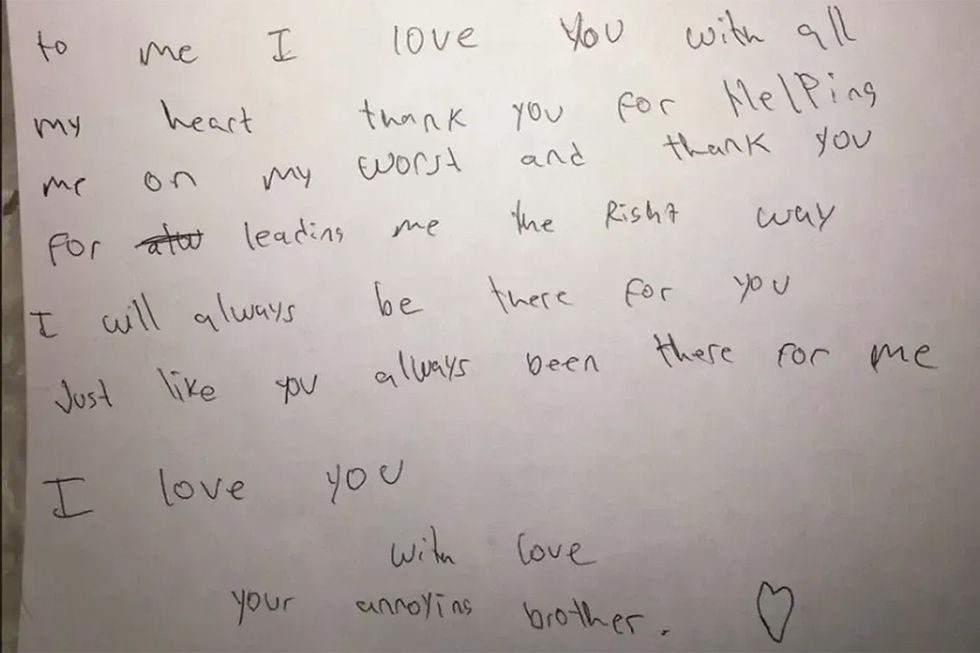 to me I love you with all
my heart thank you for Helping
me on my worst and thank you
for leading me the Right way
I will always be there for you
Just like you always been there for me
I love you
with love
your annoying brother.